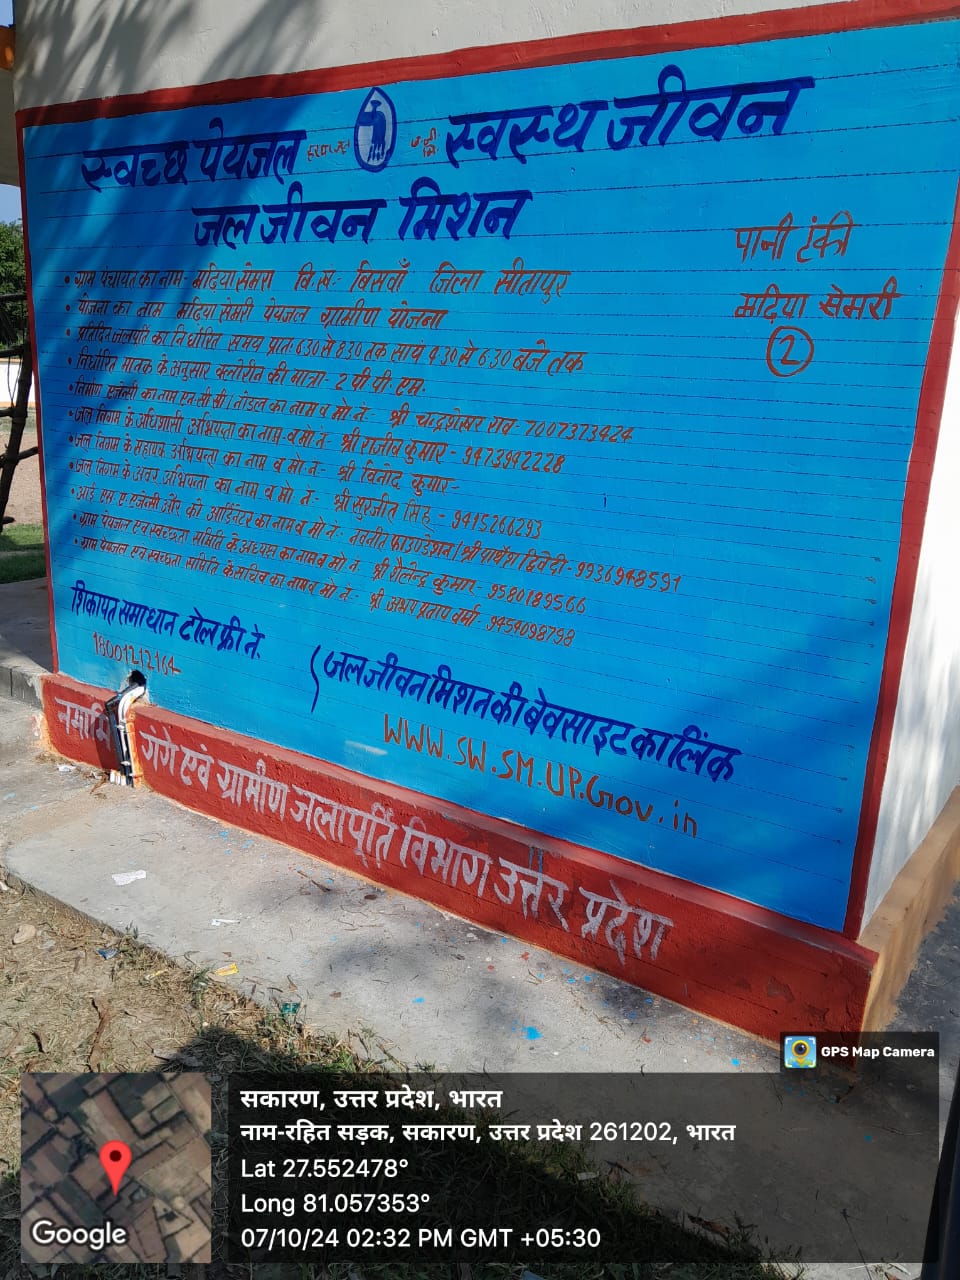 स्वच्छ पेयजल हर घर जल स्वस्थ जीवन
जल जीवन मिशन
पानी टंकी
मढिया सेमरी
2
• ग्राम पंचायत का नाम- मढिया सेमरा वि.ख.- बिसवाँ जिला सीतापुर
• योजना का नाम मढिया सेमरी पेयजल ग्रामीण योजना
• प्रतिदिन जलपूर्ति का निर्धारित समय प्रातः 6.30 से 8.30 तक सायं 4.30 से 6.30 बजे तक
• निर्धारित मानक के अनुसार क्लोरीन की मात्रा- 2 पी.पी.एम.
• निर्माण एजेन्सी का नाम एन.सी.सी./ नोडल का नाम व मो.नं.- श्री चन्द्रशेखर राव- 7007373424
• जल निगम के अधिशासी अभियन्ता का नाम व मो नं- श्री राजीव कुमार- 9473942228
• जल निगम के सहायक अभियन्ता का नाम व मो.नं.- श्री विनोद कुमार-
• जल निगम के अवर अभियन्ता का नाम व मो नं- श्री सुरजीत सिंह- 9415266293
• आई एस ए एजेन्सी और को आर्डिनेटर का नाम व मो नं- नवनीत फाउण्डेशन / श्री पार्थेश द्विवेदी- 9936948591
• ग्राम पेयजल एवं स्वच्छता समिति के अध्यक्ष का नाम व मो नं- श्री शैलेन्द्र कुमार- 9580189566
• ग्राम पेयजल एवं स्वच्छता समिति के सचिव का नाम व मो नं- श्री प्रताप वर्मा- 9454098798
शिकायत समाधान टोल फ्री नं.
18001212164
जल जीवन मिशन की बेवसाइट का लिंक
WWW.SW.SM.UP.Gov.in
नमामि गंगे एवं ग्रामीण जलापूर्ति विभाग उत्तर प्रदेश
GPS Map Camera
सकारण, उत्तर प्रदेश, भारत
नाम-रहित सड़क, सकारण, उत्तर प्रदेश 261202, भारत
Lat 27.552478°
Long 81.057353°
07/10/24 02:32 PM GMT +05:30
Google